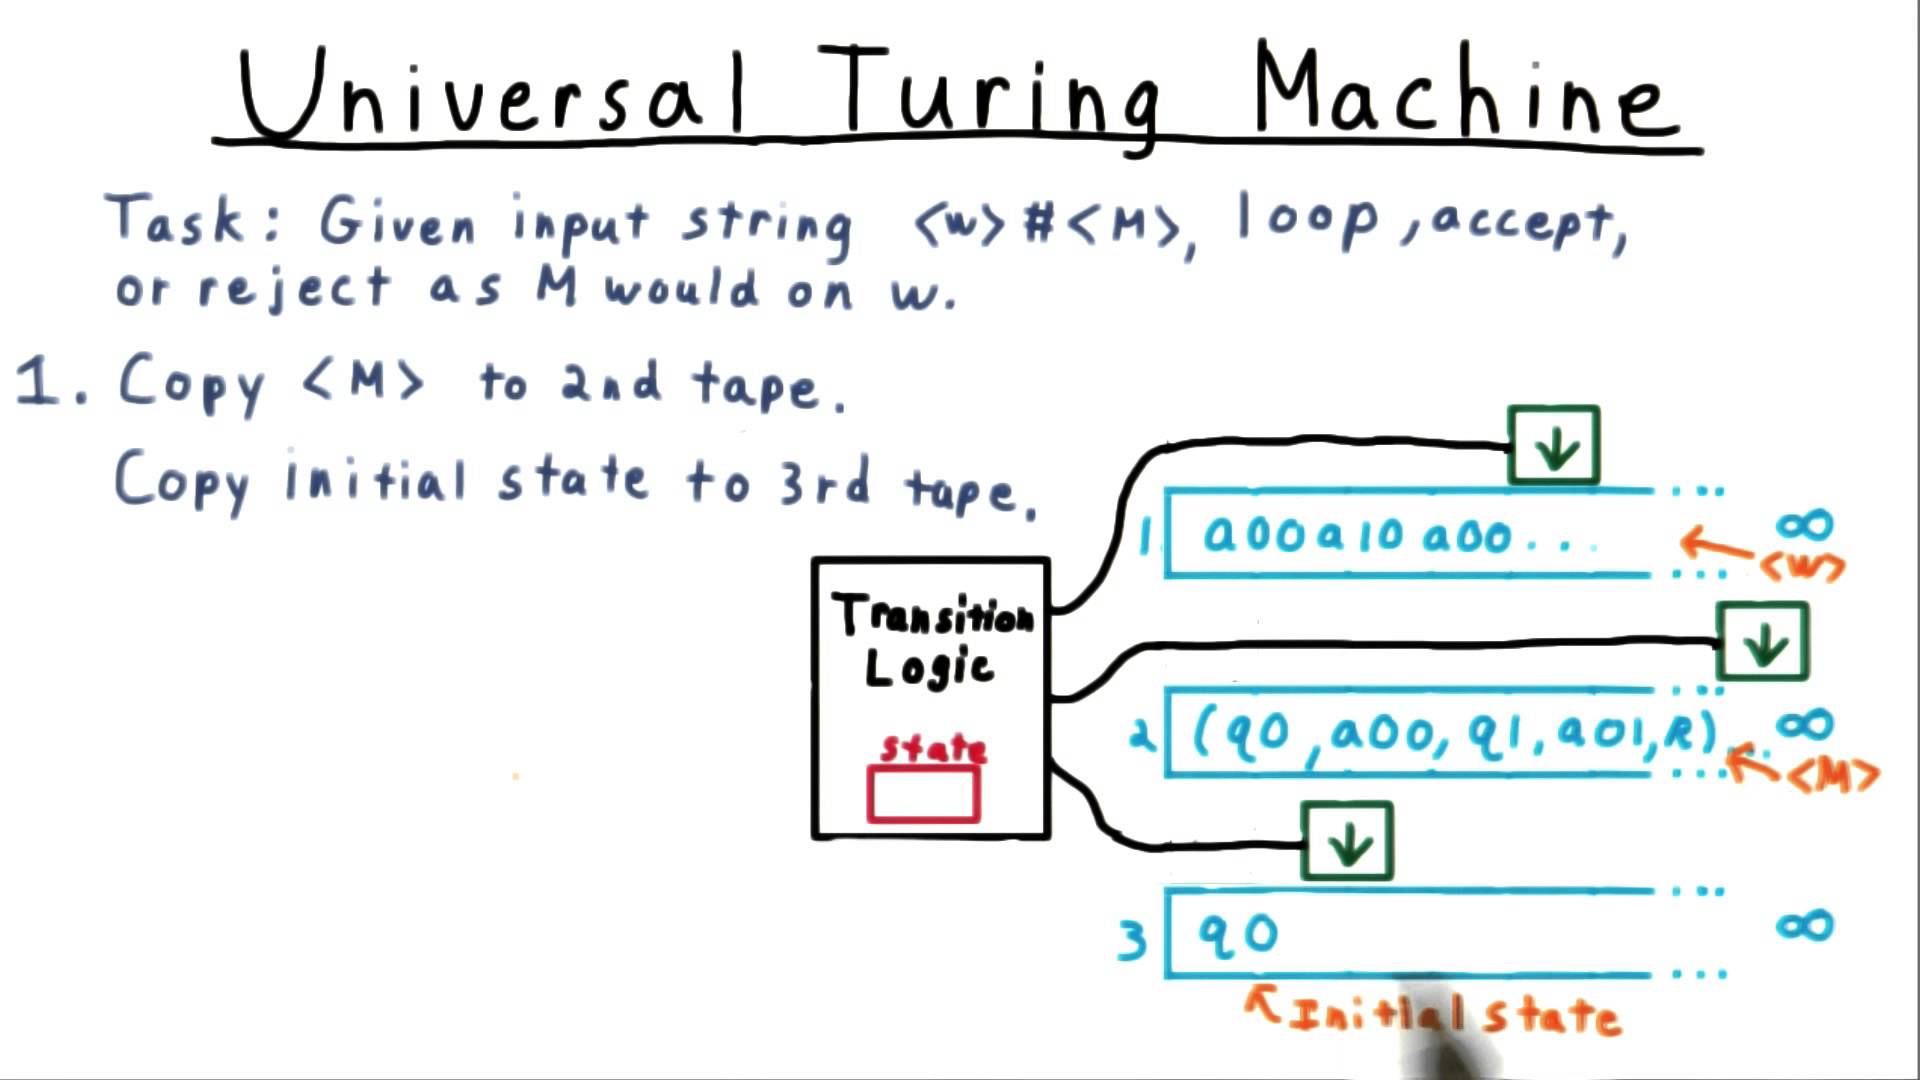 Universal Turing Machine
Task: Given input string <w>#<M>, loop, accept,
or reject as M would on w.
1. Copy <M> to 2nd tape.
Copy initial state to 3rd tape.
Transition
Logic
state
1 a00a10a00...
∞
<w>
2 (q0,a00,q1,a01,R)...
∞
<M>
3 q0
∞
Initial state